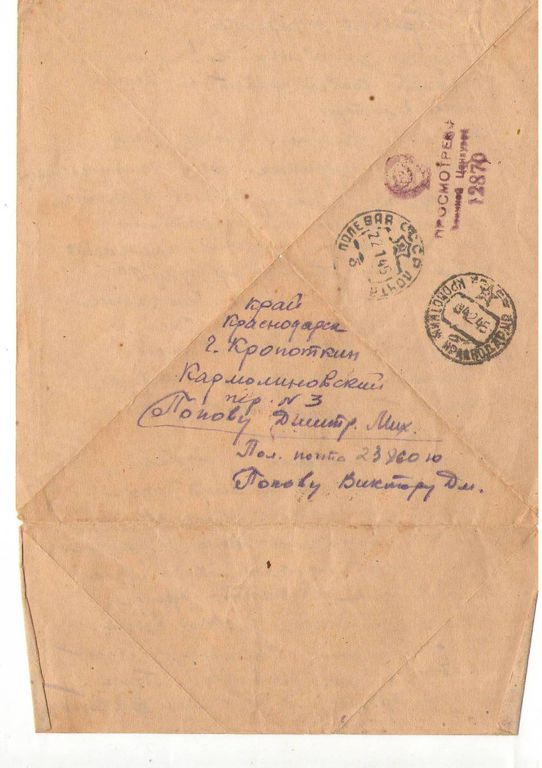 ПРОСМОТРЕНО
Военной Цензурой
12870
ПОЛЕВАЯ ПОЧТА
22 1 45
КРОПОТКИН КРАСНОДАР
04.2.45
край
Краснодарск
г. Кропоткин
Кармолиновский
пер. N 3
Попову Дмитр. Мих.
Пол. почта 23860 ю
Попову Виктору Дм.